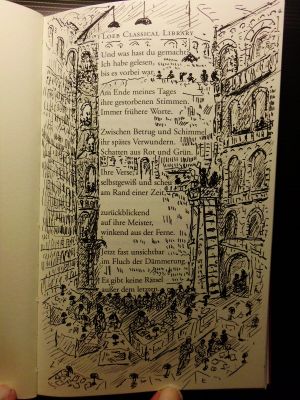 LOEB CLASSICAL LIBRARY
Und was hast du gemacht?
Ich habe gelesen,
bis es vorbei war.
Am Ende meines Tages
ihre gestorbenen Stimmen.
Immer frühere Worte.
Zwischen Betrug und Schimmel
ihr spätes Verwundern.
Schatten aus Rot und Grün.
Ihre Verse,
selbstgewiß und scheu
am Rand einer Zeit,
zurückblickend
auf ihre Meister,
winkend aus der Ferne.
Jetzt fast unsichtbar
im Fluch der Dämmerung.
Es gibt keine Rätsel
außer den letzten.